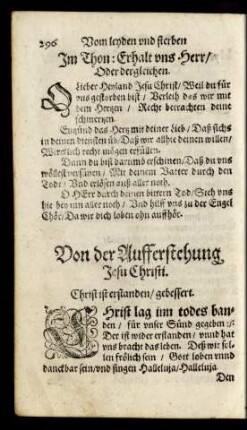 296 Vom leyden vnd sterben
Im Thon: Erhalt vns Herr/
Oder dergleichen.
O Lieber Heyland Jesu Christ/ Weil du für
vns gestorben bist/ Verleih das wir mit
dem Hertzen/ Recht betrachten deine
schmertzen.
Entzünd das Hertz mit deiner Lieb/ Daß sichs
in deinen diensten üb/ Daß wir allhie deinen willen/
recht mögen erfüllen.
Dann du bist darumb erschinen/ Daß du vns
wöllest versünen/ Mit deinem Vatter durch den
Todt: Vnd erlösen auß aller noth.
O HErr durch deinen bittern Tod/ Steh vns
hie bey inn aller noth/ Vnd hilff vns zu der Engel
Chör/ Da wir dich loben ohn auffhör.
Von der Aufferstehung
Jesu Christi.
Christ ist erstanden/ gebessert.
CHrist lag inn todes ban-
den/ für vnser Sünd gegeben:/:
Der ist wider erstanden/ vnnd hat
vns bracht das leben. Deß wir sol-
len frölich sein/ Gott loben vnnd
danckbar sein/ vnd singen Halleluja/ Halleluja
Den